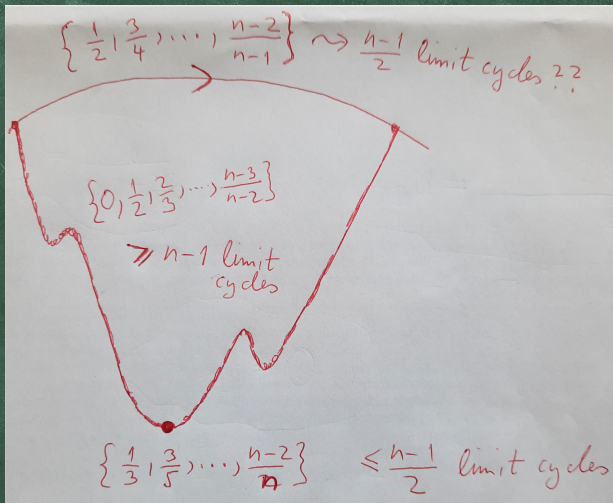 {1/2, 3/4, ..., n-2/n-1} ⇝ n-1/2 limit cycles ??
{0, 1/2, 2/3, ..., n-3/n-2}
⩾ n-1 limit
cycles
{1/3, 3/5, ..., n-2/n} ≤ n-1/2 limit cycles